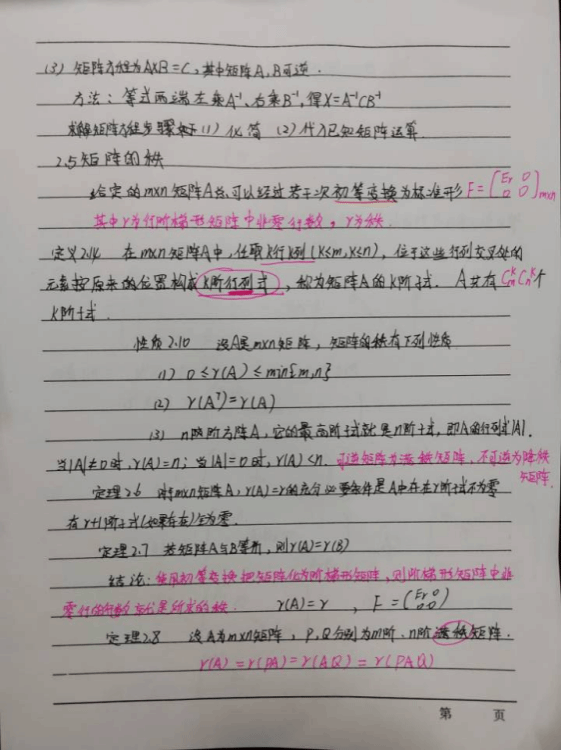 (3) 矩阵方程为AXB=C,其中矩阵A,B可逆.
方法:等式两端左乘A⁻¹、右乘B⁻¹,得X=A⁻¹CB⁻¹
求解矩阵方程步骤如下(1)化简 (2)代入已知矩阵运算
2.5矩阵的秩
给定的m×n矩阵A总可以经过若干次初等变换为标准形F=(Er 0 0 0)m×n
其中r为行阶梯形矩阵中非零行数,r为秩
定义2.14 在m×n矩阵A中,任取k行k列(k≤m,k≤n),位于这些行列交叉处的
元素按原来的位置构成k阶行列式,称为矩阵A的k阶子式. A共有CᵏₘCᵏₙ个
k阶子式.
性质2.10 设A是m×n矩阵,矩阵的秩有下列性质
(1) 0≤r(A)≤min{m,n}
(2) r(Aᵀ)=r(A)
(3) n阶方阵A,它的最高阶子式就是n阶子式,即A的行列式|A|.
当|A|≠0时,r(A)=n;当|A|=0时,r(A)<n. 可逆矩阵为满秩矩阵,不可逆为降秩
矩阵.
定理2.6 对m×n矩阵A,r(A)=r的充分必要条件是A中存在r阶子式不为零
有r+1阶子式(如果存在)全为零.
定理2.7 若矩阵A与B等价,则r(A)=r(B)
结论:使用初等变换把矩阵化为阶梯形矩阵,则阶梯形矩阵中非
零行的行数就是所求的秩. r(A)=r , F=(Er 0 0 0)
定理2.8 设A为m×n矩阵,P,Q分别为m阶、n阶满秩矩阵.
r(A)=r(PA)=r(AQ)=r(PAQ)
第 页